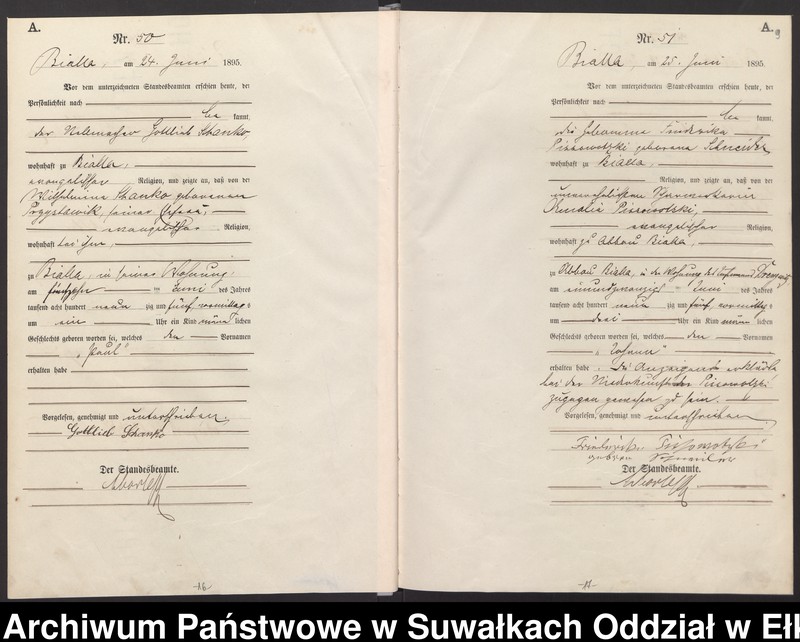 A.
Nr. 50
Bialla, am 24. Juni 1895.
Vor dem unterzeichneten Standesbeamten erschien heute, der
Persönlichkeit nach
be kannt,
der Gottlieb Skanko,
wohnhaft zu Bialla,
evangelischer Religion, und zeigte an, daß von der
Wilhelmine Skanko geborenen
Przystawik, seiner Ehefrau,
evangelischer Religion,
wohnhaft bei ihm,
zu Bialla, in seiner Wohnung
am fünfzehn ten Juni des Jahres
tausend acht hundert neun zig und fünf vormittags
um ein Uhr ein Kind männlichen
Geschlechts geboren worden sei, welches den Vornamen
„Paul"
erhalten habe
Vorgelesen, genehmigt und unterschrieben.
Gottlieb Skanko
Der Standesbeamte.
-16-
A.
9
Nr. 51
Bialla, am 25. Juni 1895.
Vor dem unterzeichneten Standesbeamten erschien heute, der
Persönlichkeit nach
be kannt,
die Hebamme Friederike
geborene Schneider
wohnhaft zu Bialla,
Religion, und zeigte an, daß von der
unverehelichten
Amalie
evangelischer Religion,
wohnhaft zu Abbau Bialla,
zu Abbau Bialla, in der Wohnung des
am einundzwanzig ten Juni des Jahres
tausend acht hundert neun zig und fünf, vormittags
um drei Uhr ein Kind männlichen
Geschlechts geboren worden sei, welches den Vornamen
„Johann"
erhalten habe. Die Anzeigende erklärte
bei der Niederkunft der
zugegen gewesen zu sein.
Vorgelesen, genehmigt und unterschrieben.
geboren
Der Standesbeamte.
-17-
Archiwum Państwowe w Suwałkach Oddział w Eł